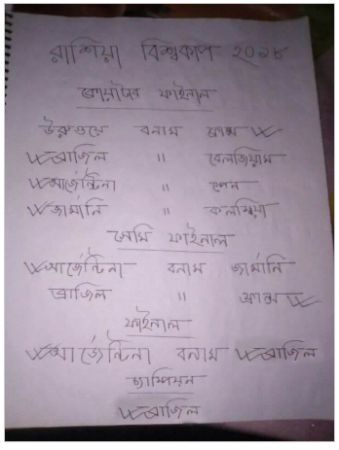 রাশিয়া বিশ্বকাপ ২০১৮
কোয়াটার ফাইনাল
উরুগুয়ে বনাম ফ্রান্স
ব্রাজিল " বেলজিয়াম
আর্জেন্টিনা " স্পেন
জার্মানি " কলম্বিয়া
সেমি ফাইনাল
আর্জেন্টিনা বনাম জার্মানি
ব্রাজিল " ফ্রান্স
ফাইনাল
আর্জেন্টিনা বনাম ব্রাজিল
চ্যাম্পিয়ন
ব্রাজিল